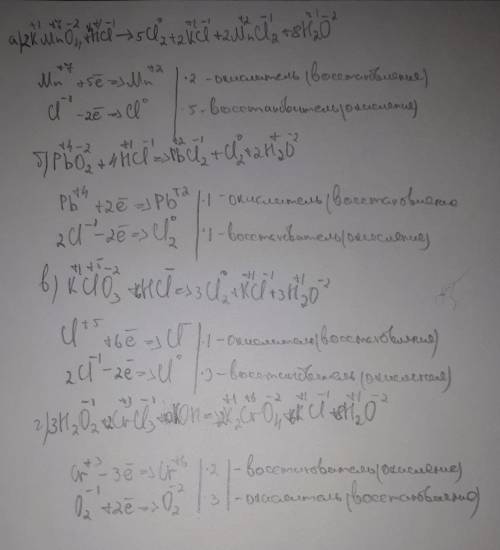 а) 2K⁺¹Mn⁺⁷O₄⁻² + HCl⁻¹ → 5Cl₂⁰ + 2K⁺¹Cl⁻¹ + 2Mn⁺²Cl₂⁻¹ + 8H₂⁺¹O⁻²
Mn⁺⁷ + 5ē => Mn⁺² | ·2 - окислитель (восстановления)
Cl⁻¹ - 2ē => Cl⁰ | ·5 - восстановитель (окисления)
б) Pb⁺⁴O₂⁻² + 4H⁺¹Cl⁻¹ => Pb⁺²Cl₂⁻¹ + Cl₂⁰ + 2H₂⁺O⁻²
Pb⁺⁴ + 2ē => Pb⁺² | ·1 - окислитель (восстановления
2Cl⁻¹ - 2ē => Cl₂⁰ | ·1 - восстановитель (окисления)
в) K⁺¹Cl⁺⁵O₃⁻² + 6HCl⁻ => 3Cl₂⁰ + K⁺¹Cl⁻¹ + 3H₂⁺¹O⁻²
Cl⁺⁵ + 6ē => Cl⁻ | ·1 - окислитель (восстановления)
2Cl⁻¹ - 2ē => Cl⁰ | ·3 - восстановитель (окисления)
г) 3H₂O₂⁻¹ + 2Cr⁺³Cl₃⁻¹ + KOH = 2K₂⁺¹Cr⁺⁶O₄⁻² + 6K⁺¹Cl⁻¹ + 8H₂⁺¹O⁻²
Cr⁺³ - 3ē => Cr⁺⁶ | ·2 | - восстановитель (окисление)
O₂⁻¹ + 2ē => O₂⁻² | 3 | - окислитель (восстановления)